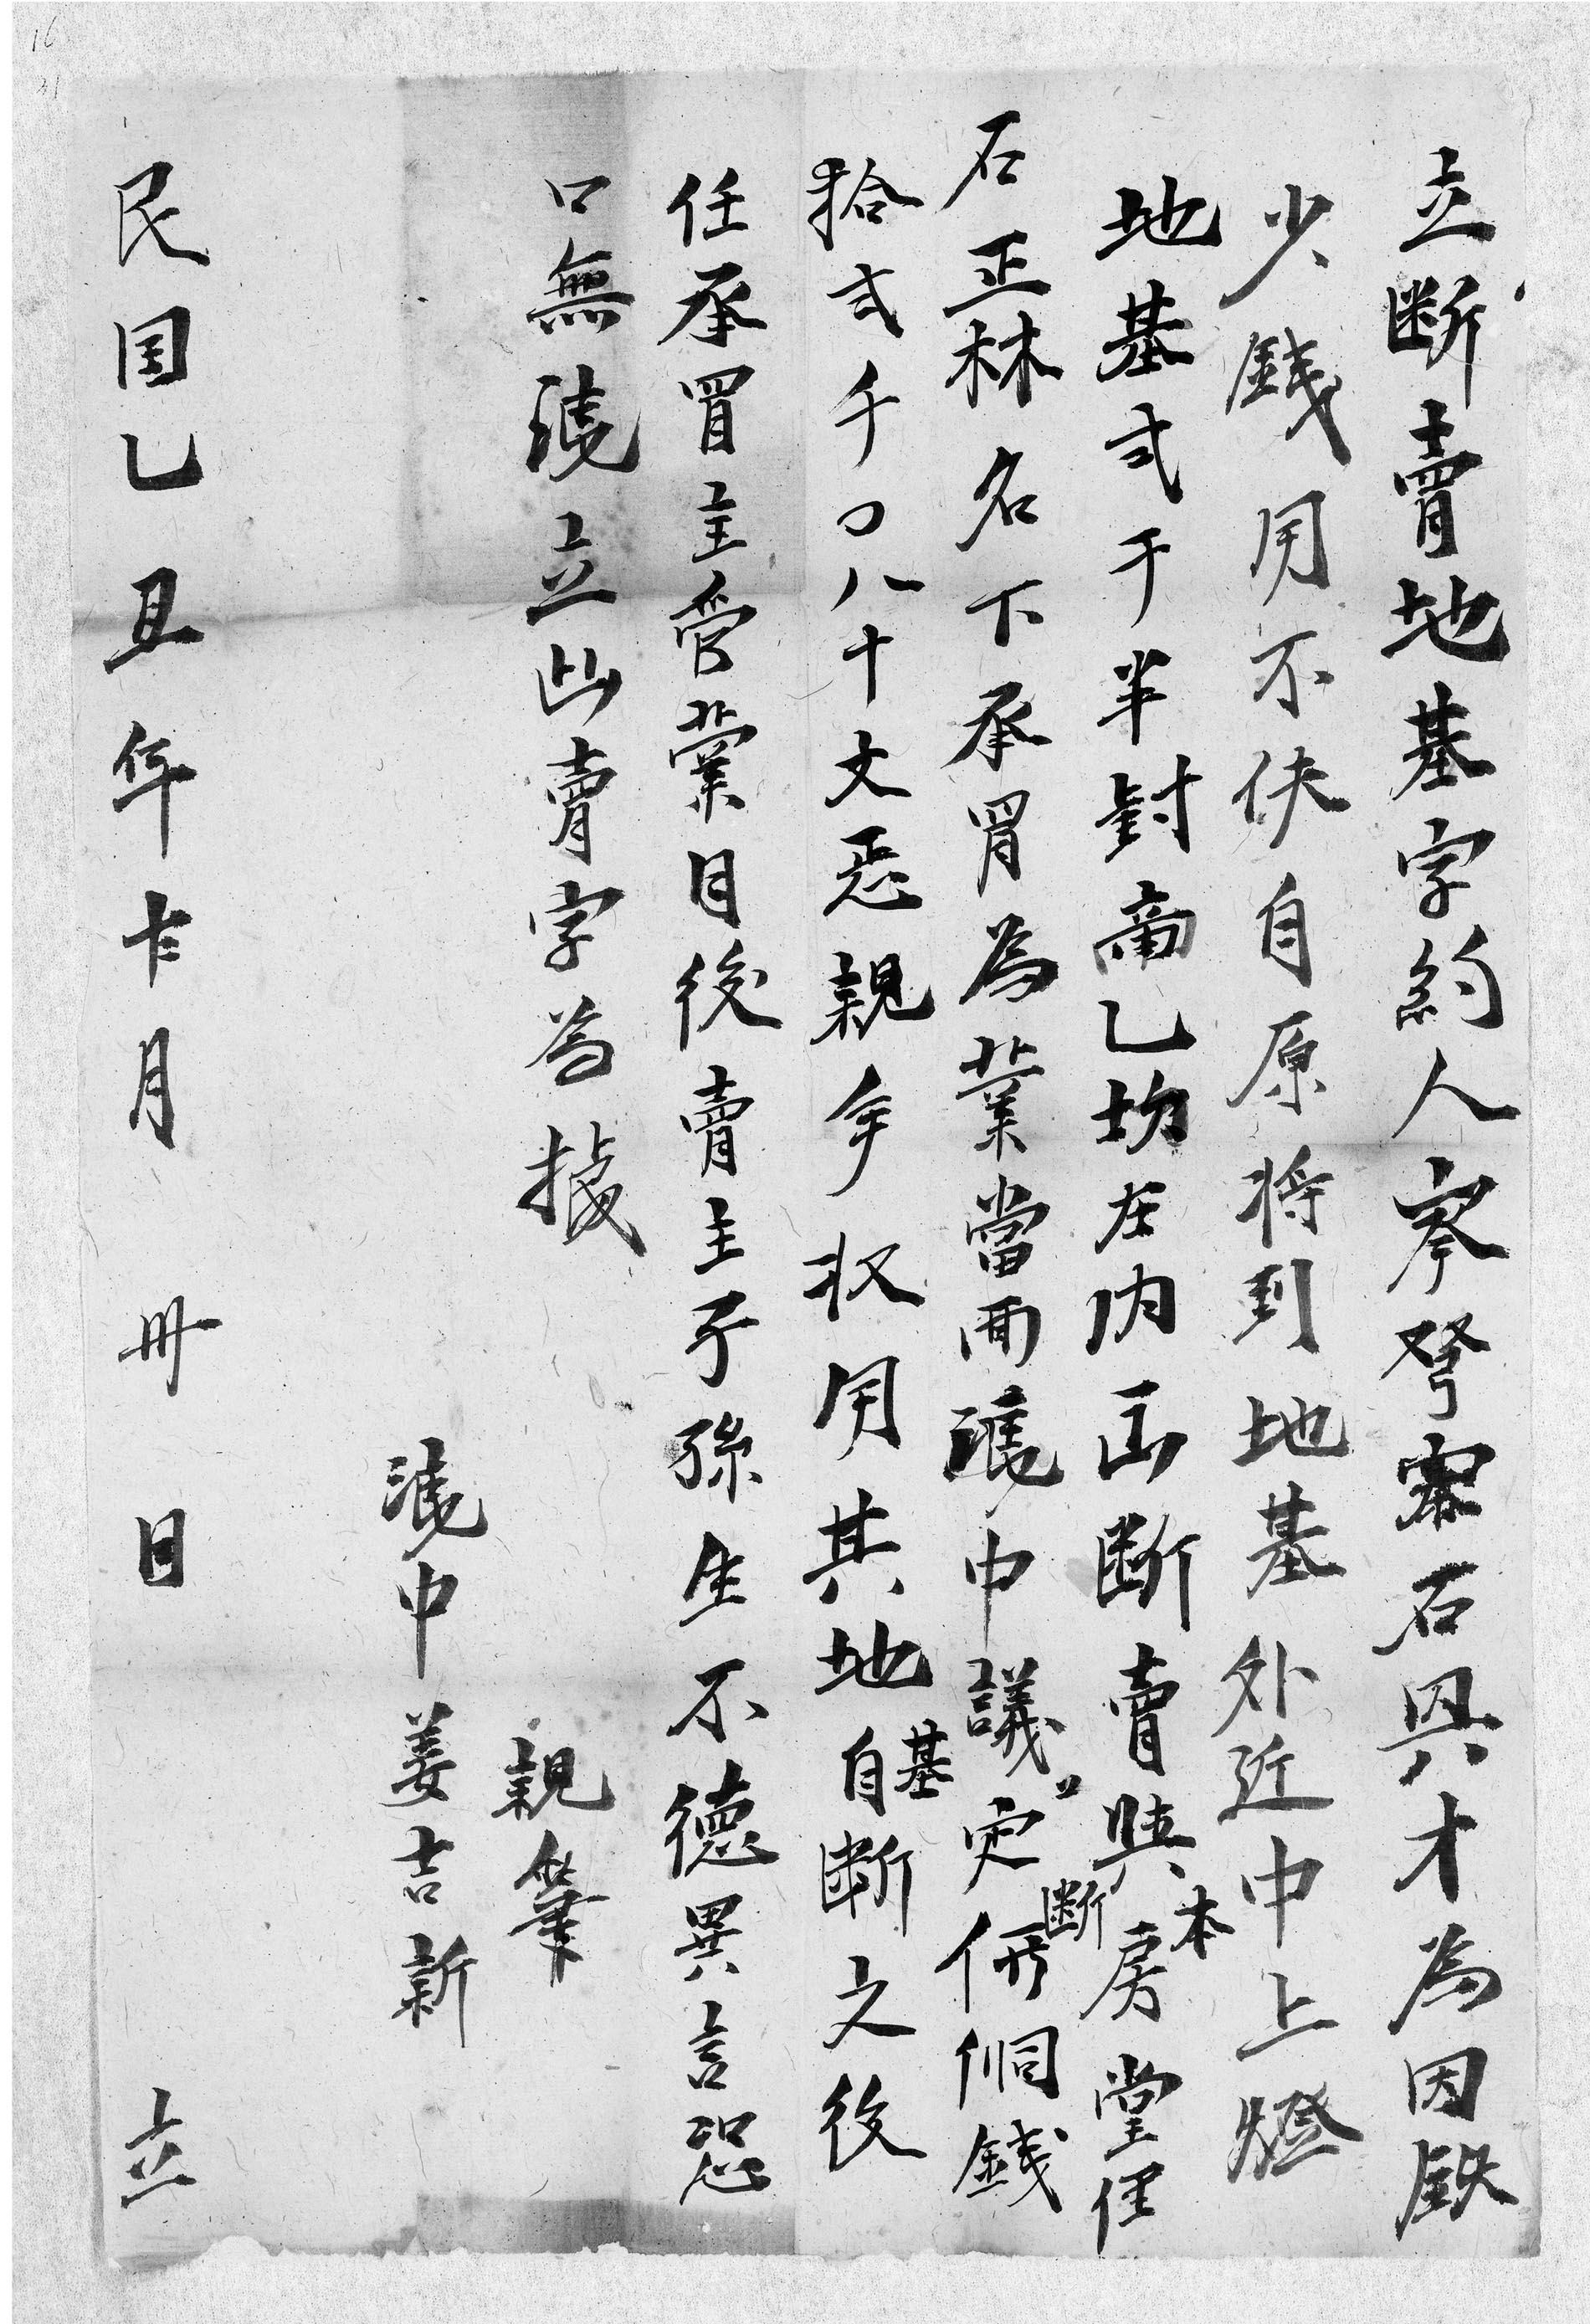 立断賣地基字約人寥發霖石與才為因缺
少錢用不伕自原将到地基外近中上燈
地基弍于半封啇乙坊在内出断賣與本房堂侄
石正林名下承買為業當面憑中議定断價銅錢
拾弍千〇八十文悉親手収用其地基自断之後
任承買主管業日後賣主子孫生不德異言恐
口無憑立此賣字為據
親筆
憑中姜吉新
民国乙丑年十二月卅日立